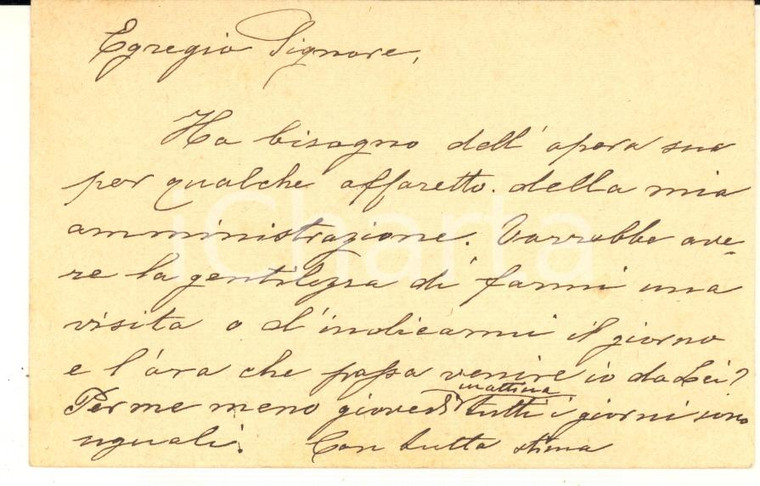 Egregio Signore,
Ho bisogno dell'opera sua
per qualche affaretto della mia
amministrazione. Vorrebbe ave-
re la gentilezza di farmi una
visita o d'indicarmi il giorno
e l'ora che possa venire io da Lei?
mattina
Per me meno giovedì tutti i giorni sono
uguali. Con tutta stima
iCharta